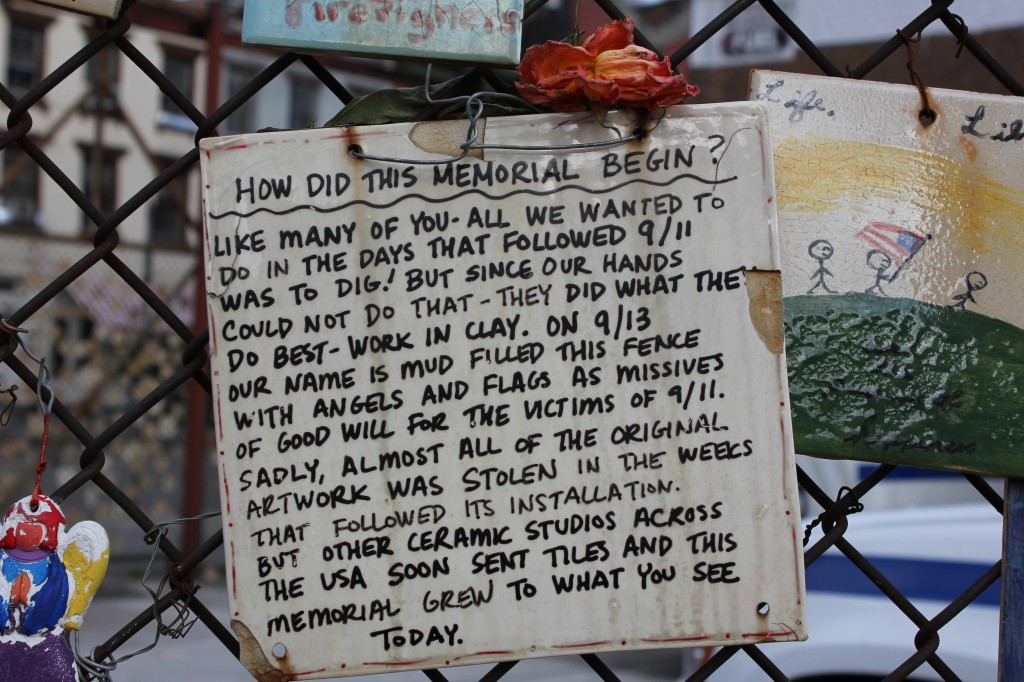 Firefighters
HOW DID THIS MEMORIAL BEGIN?
LIKE MANY OF YOU-ALL WE WANTED TO
DO IN THE DAYS THAT FOLLOWED 9/11
WAS TO DIG! BUT SINCE OUR HANDS
COULD NOT DO THAT-THEY DID WHAT THE
DO BEST-WORK IN CLAY. ON 9/13
OUR NAME IS MUD FILLED THIS FENCE
WITH ANGELS AND FLAGS AS MISSIVES
OF GOOD WILL FOR THE VICTIMS OF 9/11.
SADLY, ALMOST ALL OF THE ORIGINAL
ARTWORK WAS STOLEN IN THE WEEKS
THAT FOLLOWED ITS INSTALLATION.
BUT OTHER CERAMIC STUDIOS ACROSS
THE USA SOON SENT TILES AND THIS
MEMORIAL GREW TO WHAT YOU SEE
TODAY.
Life,
happiness